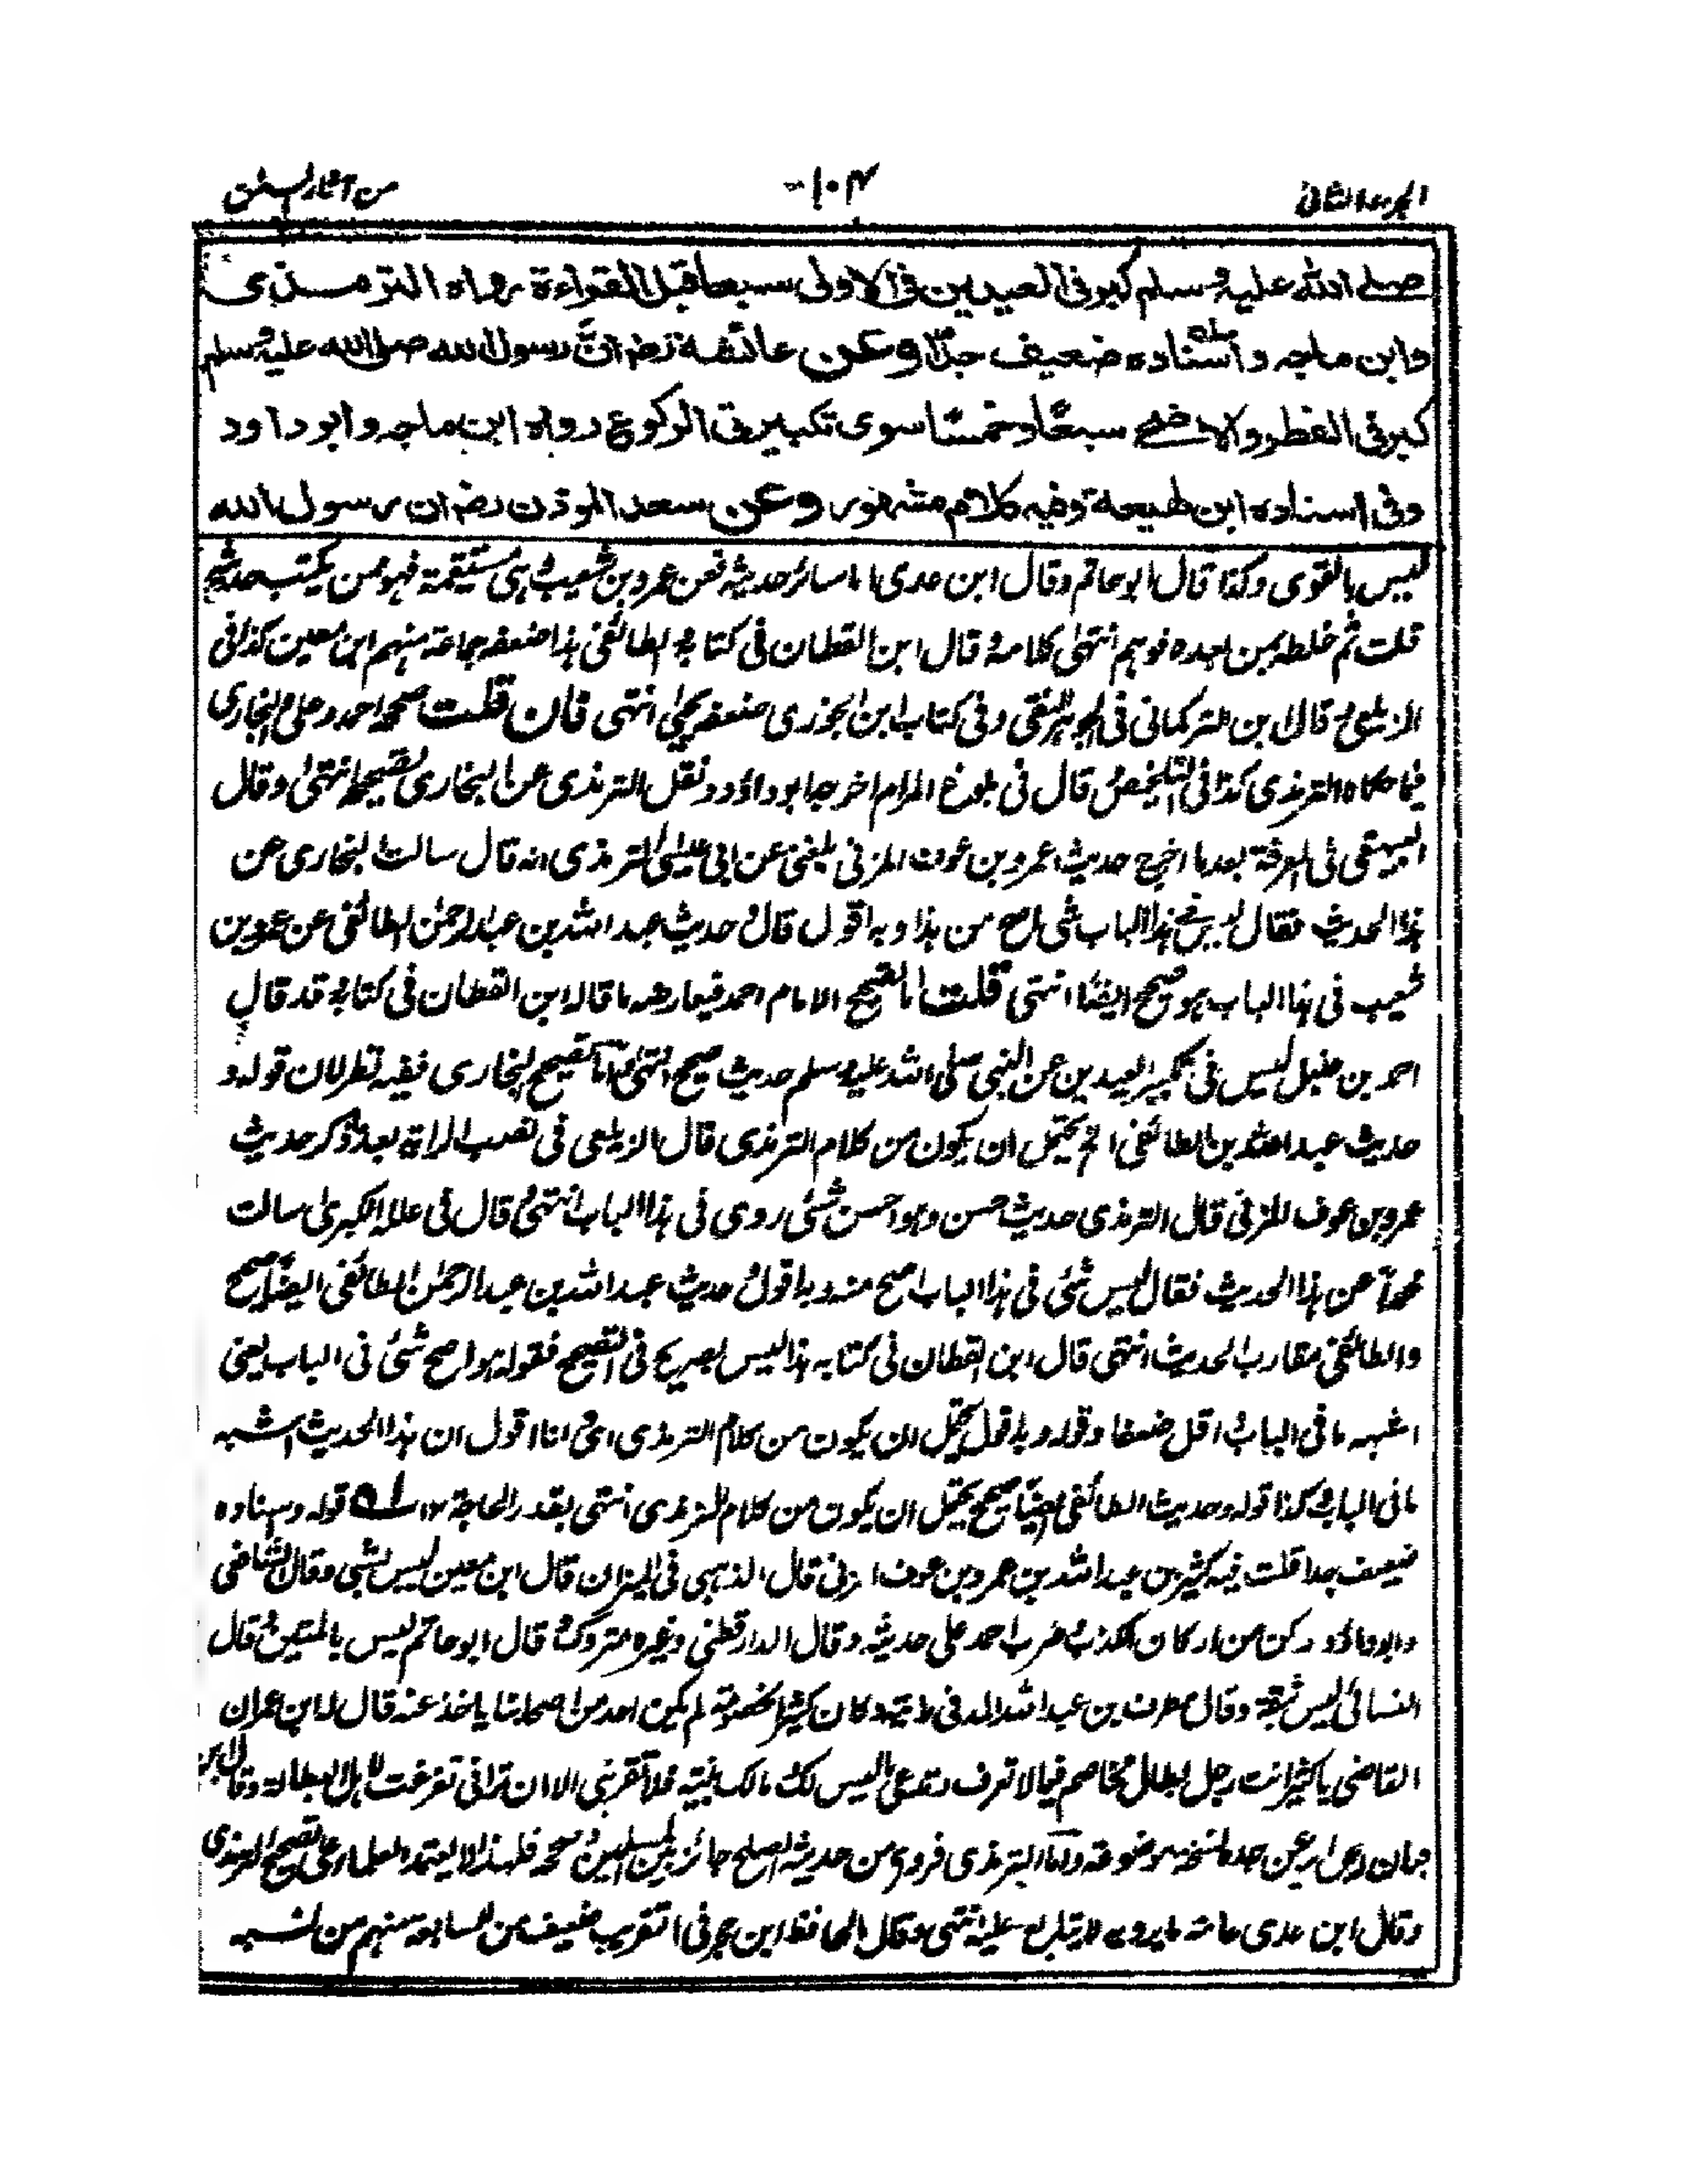 الجزء الثانی
۱۰۴
من آثار السنن
صلے الله علیہ وسلم کبر فی العیدین فی الاولی سبعا قبل القراءة رواه الترمذی
وابن ماجه واسناده ضعیف جدّا وعن عائشة رض انّ رسول الله صلی الله علیہ وسلم
کبر فی الفطر والاضحے سبعًا وخمسًا سوی تکبیرتی الرکوع رواه ابن ماجه وابو داود
وفی اسناده ابن لهیعة وفیه کلام مشهور وعن سعد المؤذن رض ان رسول الله
لیس بالقوی وکذا قال ابو حاتم وقال ابن عدی اما سائر حدیثه فعن عمرو بن شعیب وہی مستقیمة فہو ممن یکتب حدیثه
قلت ثم خلطه بمن بعده فوہم انتهی کلامه وقال ابن القطان فی کتابه والطائفی ہذا ضعفه جماعة منہم ابن معین کذا فی
الزیلعی وقال ابن الترکمانی فی الجوہر النقی وفی کتاب ابن الجوزی ضعفه یحیٰی انتہی فان قلت صححه احمد وعلی والبخاری
فیما حکاه الترمذی کذا فی التلخیص وقال فی بلوغ المرام اخرجه ابو داؤد ونقل الترمذی عن البخاری تصحیحه انتہیٰ وقال
البیہقی فی المعرفة بعد ما اخرج حدیث عمرو بن عوف المزنی بلغنی عن ابی عیسٰی الترمذی انه قال سالت البخاری عن
ہذا الحدیث فقال لیس فی ہذا الباب شی اصح من ہذا وبه اقول قال وحدیث عبد الله بن عبد الرحمٰن الطائفی عن عمرو بن
شعیب فی ہذا الباب ہو صحیح ایضًا انتہی قلت اما تصحیح الامام احمد فیعارضه ما قاله ابن القطان فی کتابه وقد قال
احمد بن حنبل لیس فی تکبیر العیدین عن النبی صلی الله علیه وسلم حدیث صحیح انتہیٰ واما تصحیح البخاری ففیه نظر لان قوله و
حدیث عبد الله بن الطائفی الخ یحتمل ان یکون من کلام الترمذی قال الزیلعی فی نصب الرایة بعد ذکر حدیث
عمرو بن عوف المزنی قال الترمذی حدیث حسن وہو احسن شئی روی فی ہذا الباب انتہیٰ وقال فی علله الکبریٰ سالت
محمداً عن ہذا الحدیث فقال لیس شئی فی ہذا الباب اصح منه وبه اقول وحدیث عبد الله بن عبد الرحمٰن الطائفی ایضًا صحیح
والطائفی مقارب الحدیث انتہی قال ابن القطان فی کتابه ہذا لیس بصریح فی التصحیح فقوله ہو اصح شئی فی الباب یعنی
اشبه ما فی الباب واقل ضعفا وقوله وبه اقول یحتمل ان یکون من کلام الترمذی ای وانا اقول ان ہذا الحدیث اشبه
ما فی الباب وکذا قوله وحدیث الطائفی ایضًا صحیح یحتمل ان یکون من کلام الترمذی انتہی بقدر الحاجة ۱۲ قوله واسناده
ضعیف جدا قلت فیه کثیر بن عبد الله بن عمرو بن عوف المزنی قال الذہبی فی المیزان قال ابن معین لیس بشی وقال الشافعی
وابو داؤد رکن من ارکان الکذب وضرب احمد علی حدیثه وقال الدارقطنی وغیره متروک وقال ابو حاتم لیس بالمتین وقال
النسائی لیس بثقة وقال مطرف بن عبد الله المدنی رأیته وکان کثیر الخصومة لم یکن احد من اصحابنا یاخذ عنه قال له ابن عمران
القاضی یا کثیر انت رجل بطال تخاصم فیما لا تعرف وتدعی ما لیس لک وما لک بینة فلا تقربنی الا ان ترانی تفرغت لاہل البطالة وقال ابن
حبان له عن ابیه عن جده نسخة موضوعة واما الترمذی فروی من حدیثه الصلح جائز بین المسلمین وصححه فلهذا لا یعتمد العلماء علی تصحیح الترمذی
وقال ابن عدی عامة ما یرویه لا یتابع علیه انتہی وقال الحافظ ابن حجر فی التقریب ضعیف من السابعة منہم من نسبه